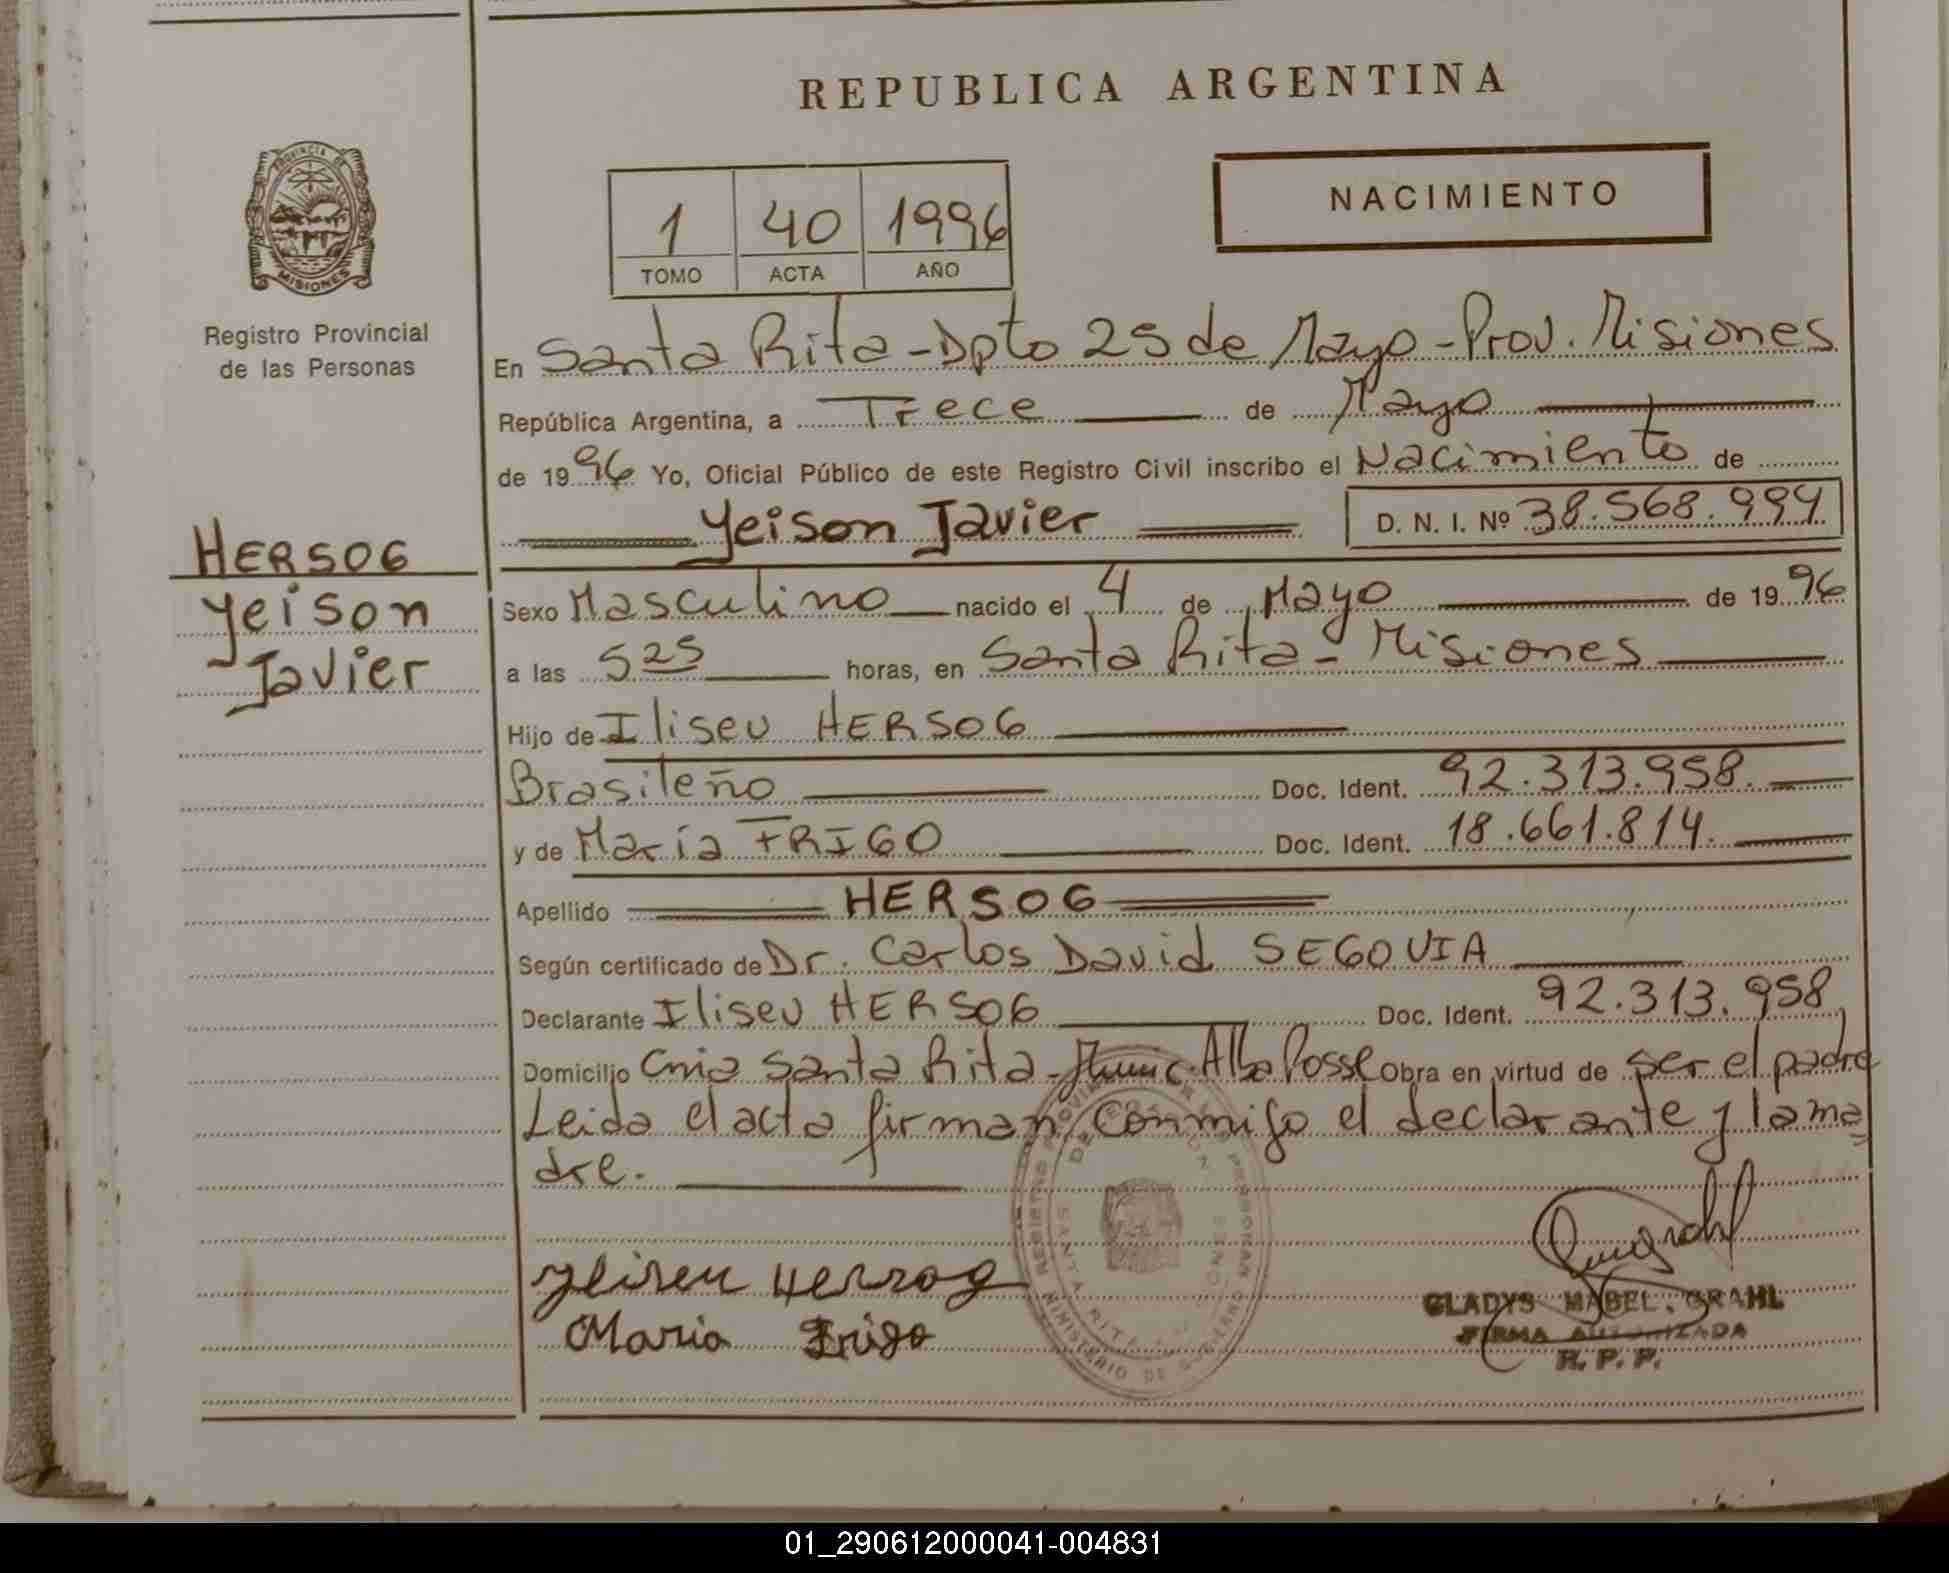 REPUBLICA ARGENTINA
NACIMIENTO
1 40 1996
TOMO ACTA AÑO
PROVINCIA DE
MISIONES
Registro Provincial
de las Personas
En Santa Rita - Dpto 25 de Mayo - Prov. Misiones
República Argentina, a Trece de Mayo
de 1996 Yo, Oficial Público de este Registro Civil inscribo el Nacimiento de
Yeison Javier D. N. I. Nº 38.568.994
HERSOG
Yeison
Javier
Sexo Masculino nacido el 4 de Mayo de 1996
a las 5 25 horas, en Santa Rita - Misiones
Hijo de Iliseu HERSOG
Brasileño Doc. Ident. 92.313.958.
y de María FRIGO Doc. Ident. 18.661.814.
Apellido HERSOG
Según certificado de Dr. Carlos David SEGOVIA
Declarante Iliseu HERSOG Doc. Ident. 92.313.958
Domicilio Cnia Santa Rita - Munic. Alba Posse Obra en virtud de ser el padre
Leida el acta firman conmigo el declarante y la ma
dre.
Yliseu Herzog
Maria Frigo
GLADYS MABEL GRAHL
FIRMA AUTORIZADA
R. P. P.
SANTA RITA
MINISTERIO DE GOBIERNO
01_290612000041-004831